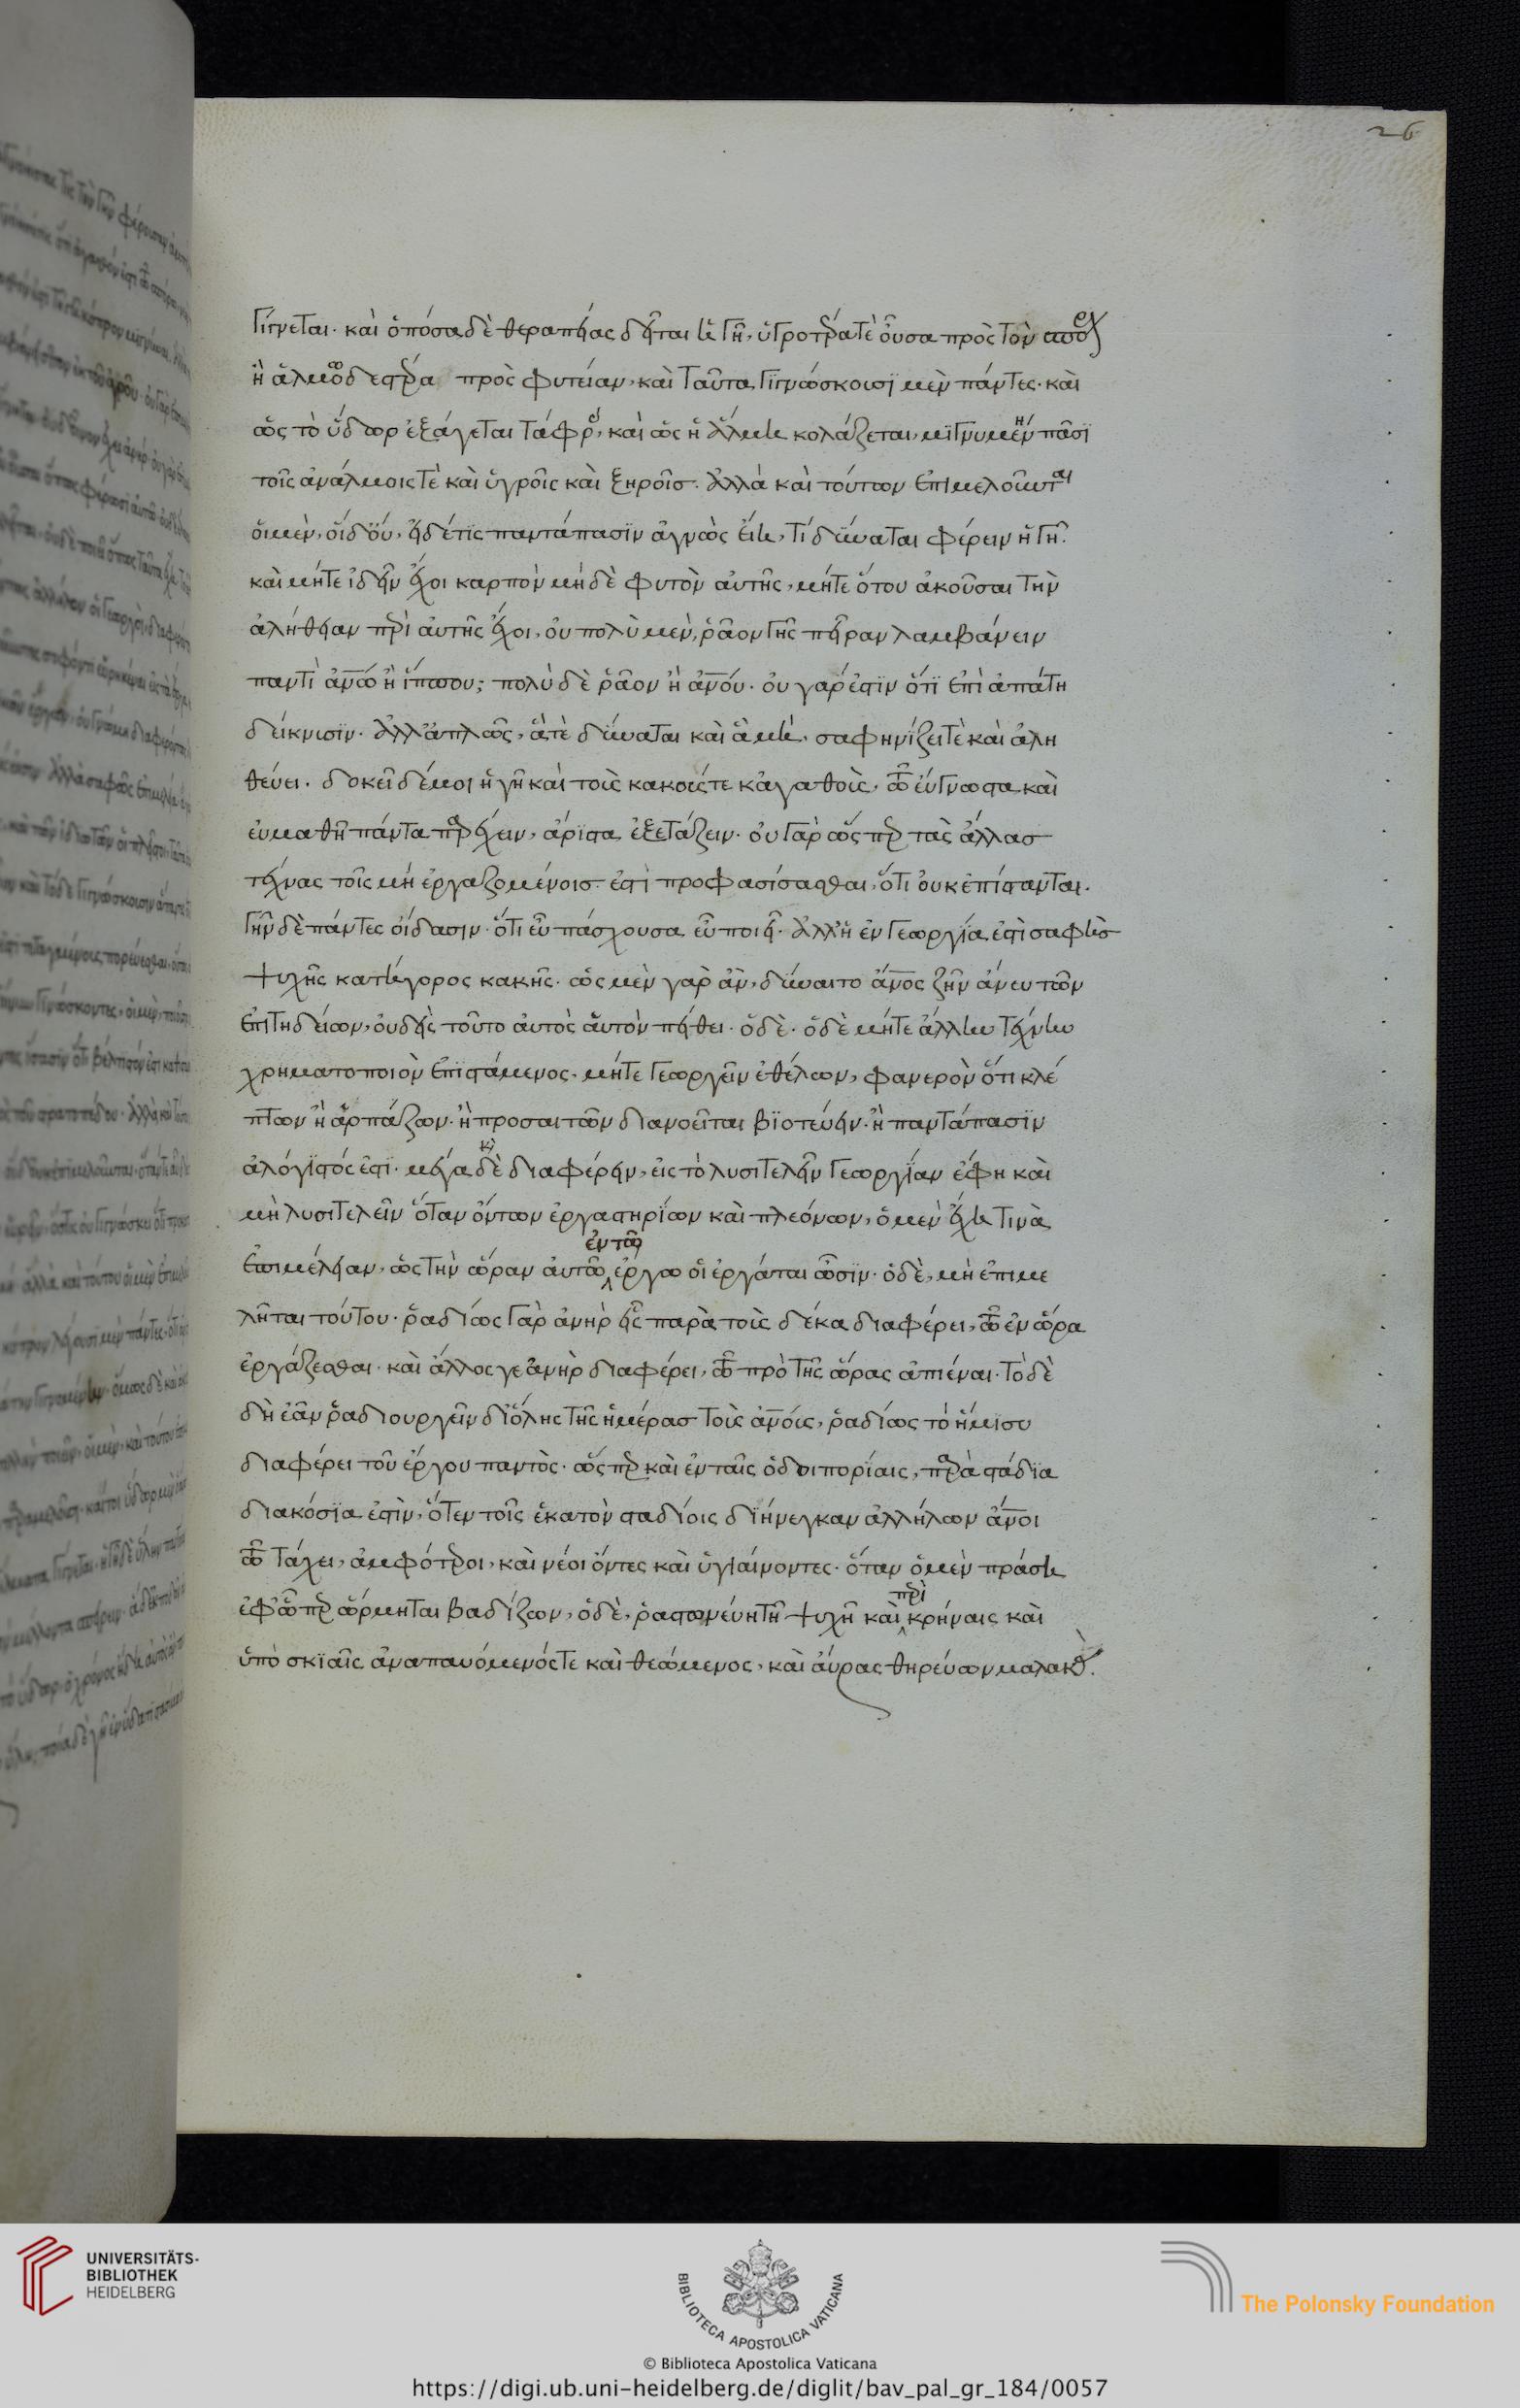 26
γίγνεται· καὶ ὁπόσα δὲ θεραπείας δεῖται ἡ γῆ, ὑγροτέρα τὲ οὖσα πρὸς τὸν σπόρον
ἢ ἁλμωδεστέρα πρὸς φυτείαν, καὶ ταῦτα γιγνώσκουσϊ μὲν πάντες· καὶ
ὡς τὸ ὕδωρ ἐξάγεται τάφροις, καὶ ὡς ἡ ἅλμη κολάζεται, μϊγνυμένη πᾶσϊ
τοῖς ἀνάλμοις τὲ καὶ ὑγροῖς καὶ ξηροῖς. ἀλλὰ καὶ τούτων ἐπιμελοῦνται
οἱ μὲν, οἱ δ' οὔ, εἰ δέ τϊς παντάπασϊν ἀγνὼς εἴη, τί δύναται φέρειν ἡ γῆ.
καὶ μήτε ἰδεῖν ἔχοι καρπὸν μηδὲ φυτὸν αὐτῆς, μήτε ὅτου ἀκοῦσαι τὴν
ἀλήθειαν περὶ αὐτῆς ἔχοι, οὐ πολὺ μὲν, ῥᾶον γῆς πεῖραν λαμβάνειν
παντὶ ἀν̅ω ἢ ἵππου; πολὺ δὲ ῥᾶον ἢ ἀν̅ου. οὐ γάρ ἐστϊν ὅτϊ ἐπὶ ἀπάτη
δείκνισϊν. ἀλλ' ἁπλῶς, ἅτὲ δύναται καὶ ἃ μὴ, σαφηνίζει τὲ καὶ ἀλη
θεύει. δοκεῖ δέ μοι ἡ γῆ καὶ τοὺς κακούς τε κἀγαθοὺς, τῶ εὔγνωστα καὶ
εὐμαθῆ πάντα παρέχειν, ἄρϊστα ἐξετάζειν. οὐ γὰρ ὥς περ τὰς ἄλλας
τέχνας τοῖς μὴ ἐργαζομένοις ἐστὶ προφασίσασθαι, ὅτι οὐκ ἐπίστανται.
γῆν δὲ πάντες οἴδασιν· ὅτι εὖ πάσχουσα εὖ ποιεῖ. ἀλλ' ἡ ἐν γεωργία ἐστὶ σαφὴς
ψυχῆς κατήγορος κακῆς. ὡς μὲν γὰρ ἂν, δύναιτο ἄν̅ος ζῆν ἄνευ τῶν
ἐπιτηδείων, οὐδεὶς τοῦτο αὐτὸς αὑτὸν πείθει. ὁ δὲ. ὁ δὲ μήτε ἄλλην τέχνην
χρηματοποιὸν ἐπϊστάμενος. μήτε γεωργεῖν ἐθέλων, φανερὸν ὅτι κλέ
πτων ἢ ἁρπάζων· ἢ προσαιτῶν διανοεῖται βϊοτεύειν· ἢ παντάπασϊν
ἀλόγϊστός ἐστι· μέγα δὲ διαφέρειν, εἰς τὸ λυσιτελεῖν γεωργίαν ἔφη καὶ
μὴ λυσιτελεῖν ὅταν ὄντων ἐργαστηρίων καὶ πλεόνων, ὁ μὲν ἔχη τινὰ
ἐν τῶ
ἐπιμέλειαν, ὡς τὴν ὥραν αὐτῶ ἔργω οἱ ἐργάται ὦσϊν· ὁ δὲ, μὴ ἐπιμε
λῆται τούτου. ῥαδίως γὰρ ἀνὴρ εἷς παρὰ τοὺς δέκα διαφέρει, τῶ ἐν ὥρα
ἐργάζεσθαι. καὶ ἄλλος γε ἀνὴρ διαφέρει, τῶ πρὸ τῆς ὥρας ἀπιέναι. τὸ δὲ
δὴ ἐᾶν ῥαδιουργεῖν δι' ὅλης τῆς ἡμέρας τοὺς ἀν̅ους, ῥαδίως τὸ ἥμϊσυ
διαφέρει τοῦ ἔργου παντὸς. ὥς περ καὶ ἐν ταῖς ὁδοιπορίαις, παρὰ στάδϊα
διακόσϊα ἐστὶν, ὅτ' ἐν τοῖς ἑκατὸν σταδίοις διήνεγκαν ἀλλήλων ἄν̅οι
τῶ τάχει, ἀμφότεροι, καὶ νέοι ὄντες καὶ ὑγιαίνοντες· ὅταν ὁ μὲν πράσση
περὶ
ἐφ' ᾧ περ ὥρμηται βαδίζων, ὁ δὲ, ῥαστωνεύη τῆ ψυχῆ καὶ κρήναις καὶ
ὑπὸ σκϊαῖς ἀναπαυόμενός τε καὶ θεώμενος, καὶ αὔρας θηρεύων μαλακὰς.
UNIVERSITÄTS-
BIBLIOTHEK
HEIDELBERG
BIBLIOTECA APOSTOLICA VATICANA
The Polonsky Foundation
© Biblioteca Apostolica Vaticana
https://digi.ub.uni-heidelberg.de/diglit/bav_pal_gr_184/0057